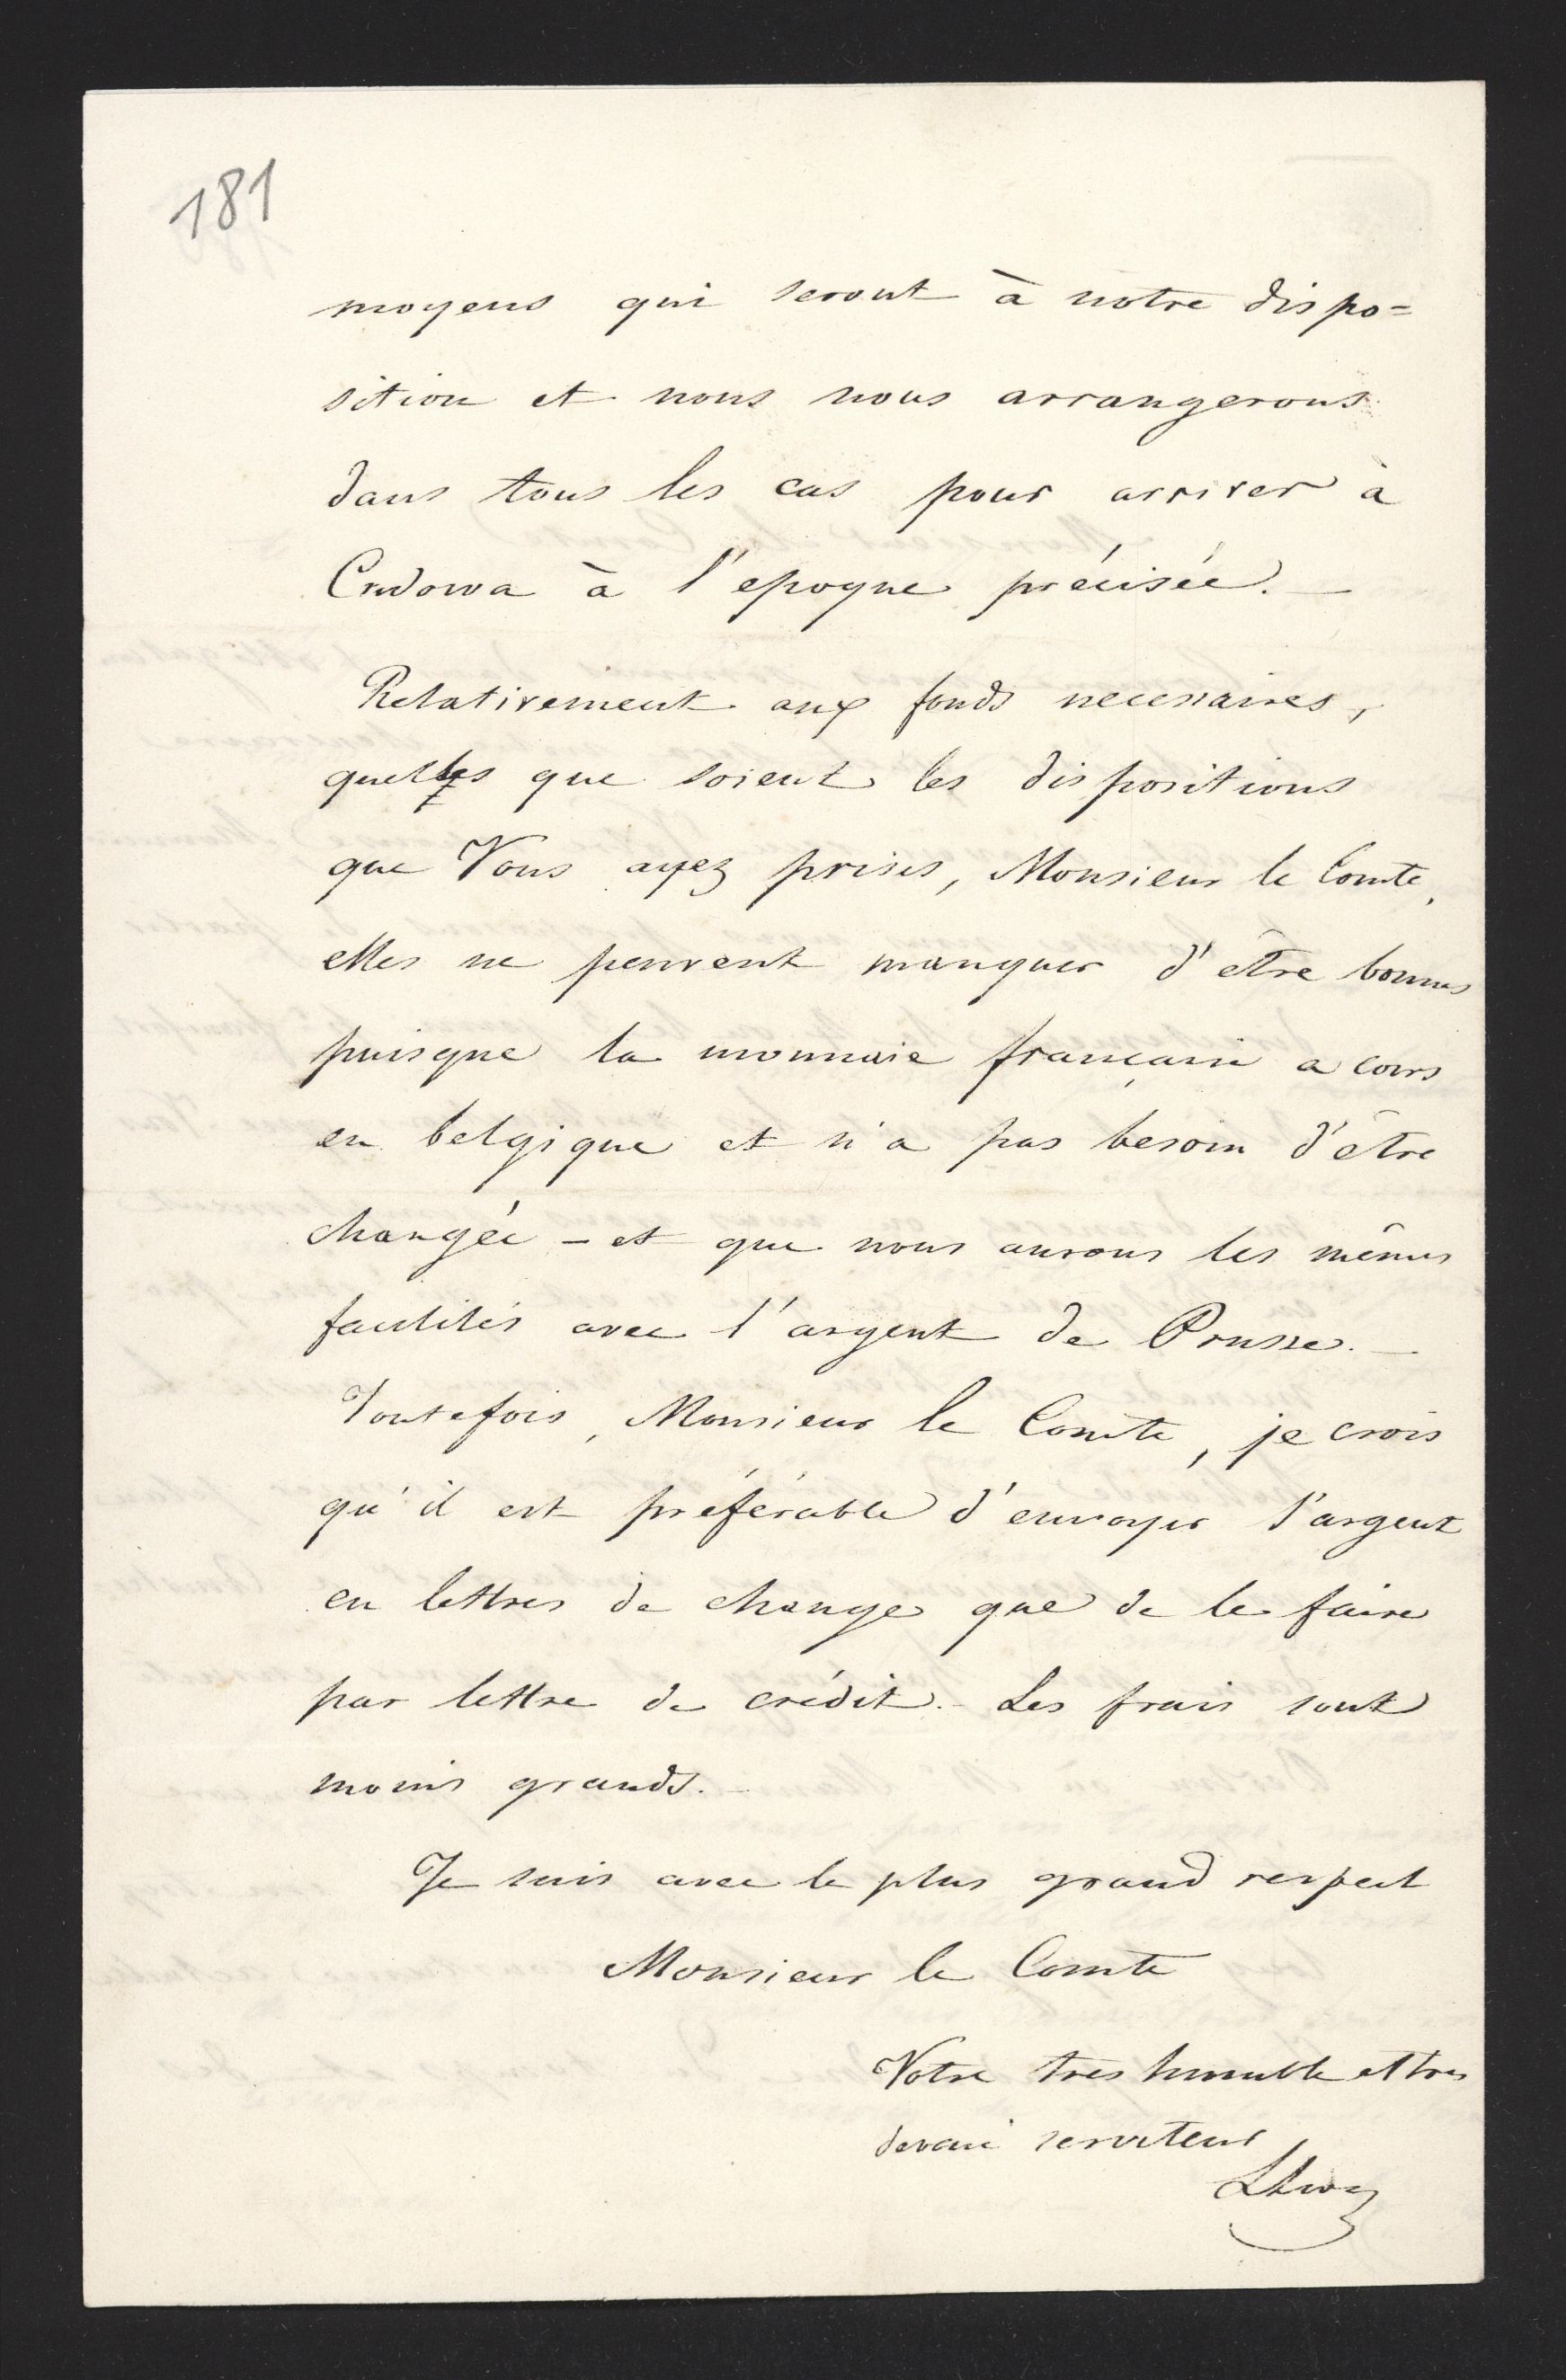 181
moyens qui seront à notre dispo=
sition et nous nous arrangerons
dans tous les cas pour arriver à
Cudowa à l'epoque précisée. —
Relativement aux fonds necessaires,
quelles que soient les dispositions
que Vous ayez prises, Monsieur le Comte,
elles ne peuvent manquer d'être bonnes
puisque la monnaie française a cours
en belgique et n'a pas besoin d'être
changée – et que nous aurons les mêmes
facilités avec l'argent de Prusse. —
Toutefois, Monsieur le Comte, je crois
qu'il est préférable d'envoyer l'argent
en lettres de change que de le faire
par lettre de crédit. – Les frais sont
moins grands. –
Je suis avec le plus grand respect
Monsieur le Comte
Votre très humble et tres
devoué serviteur